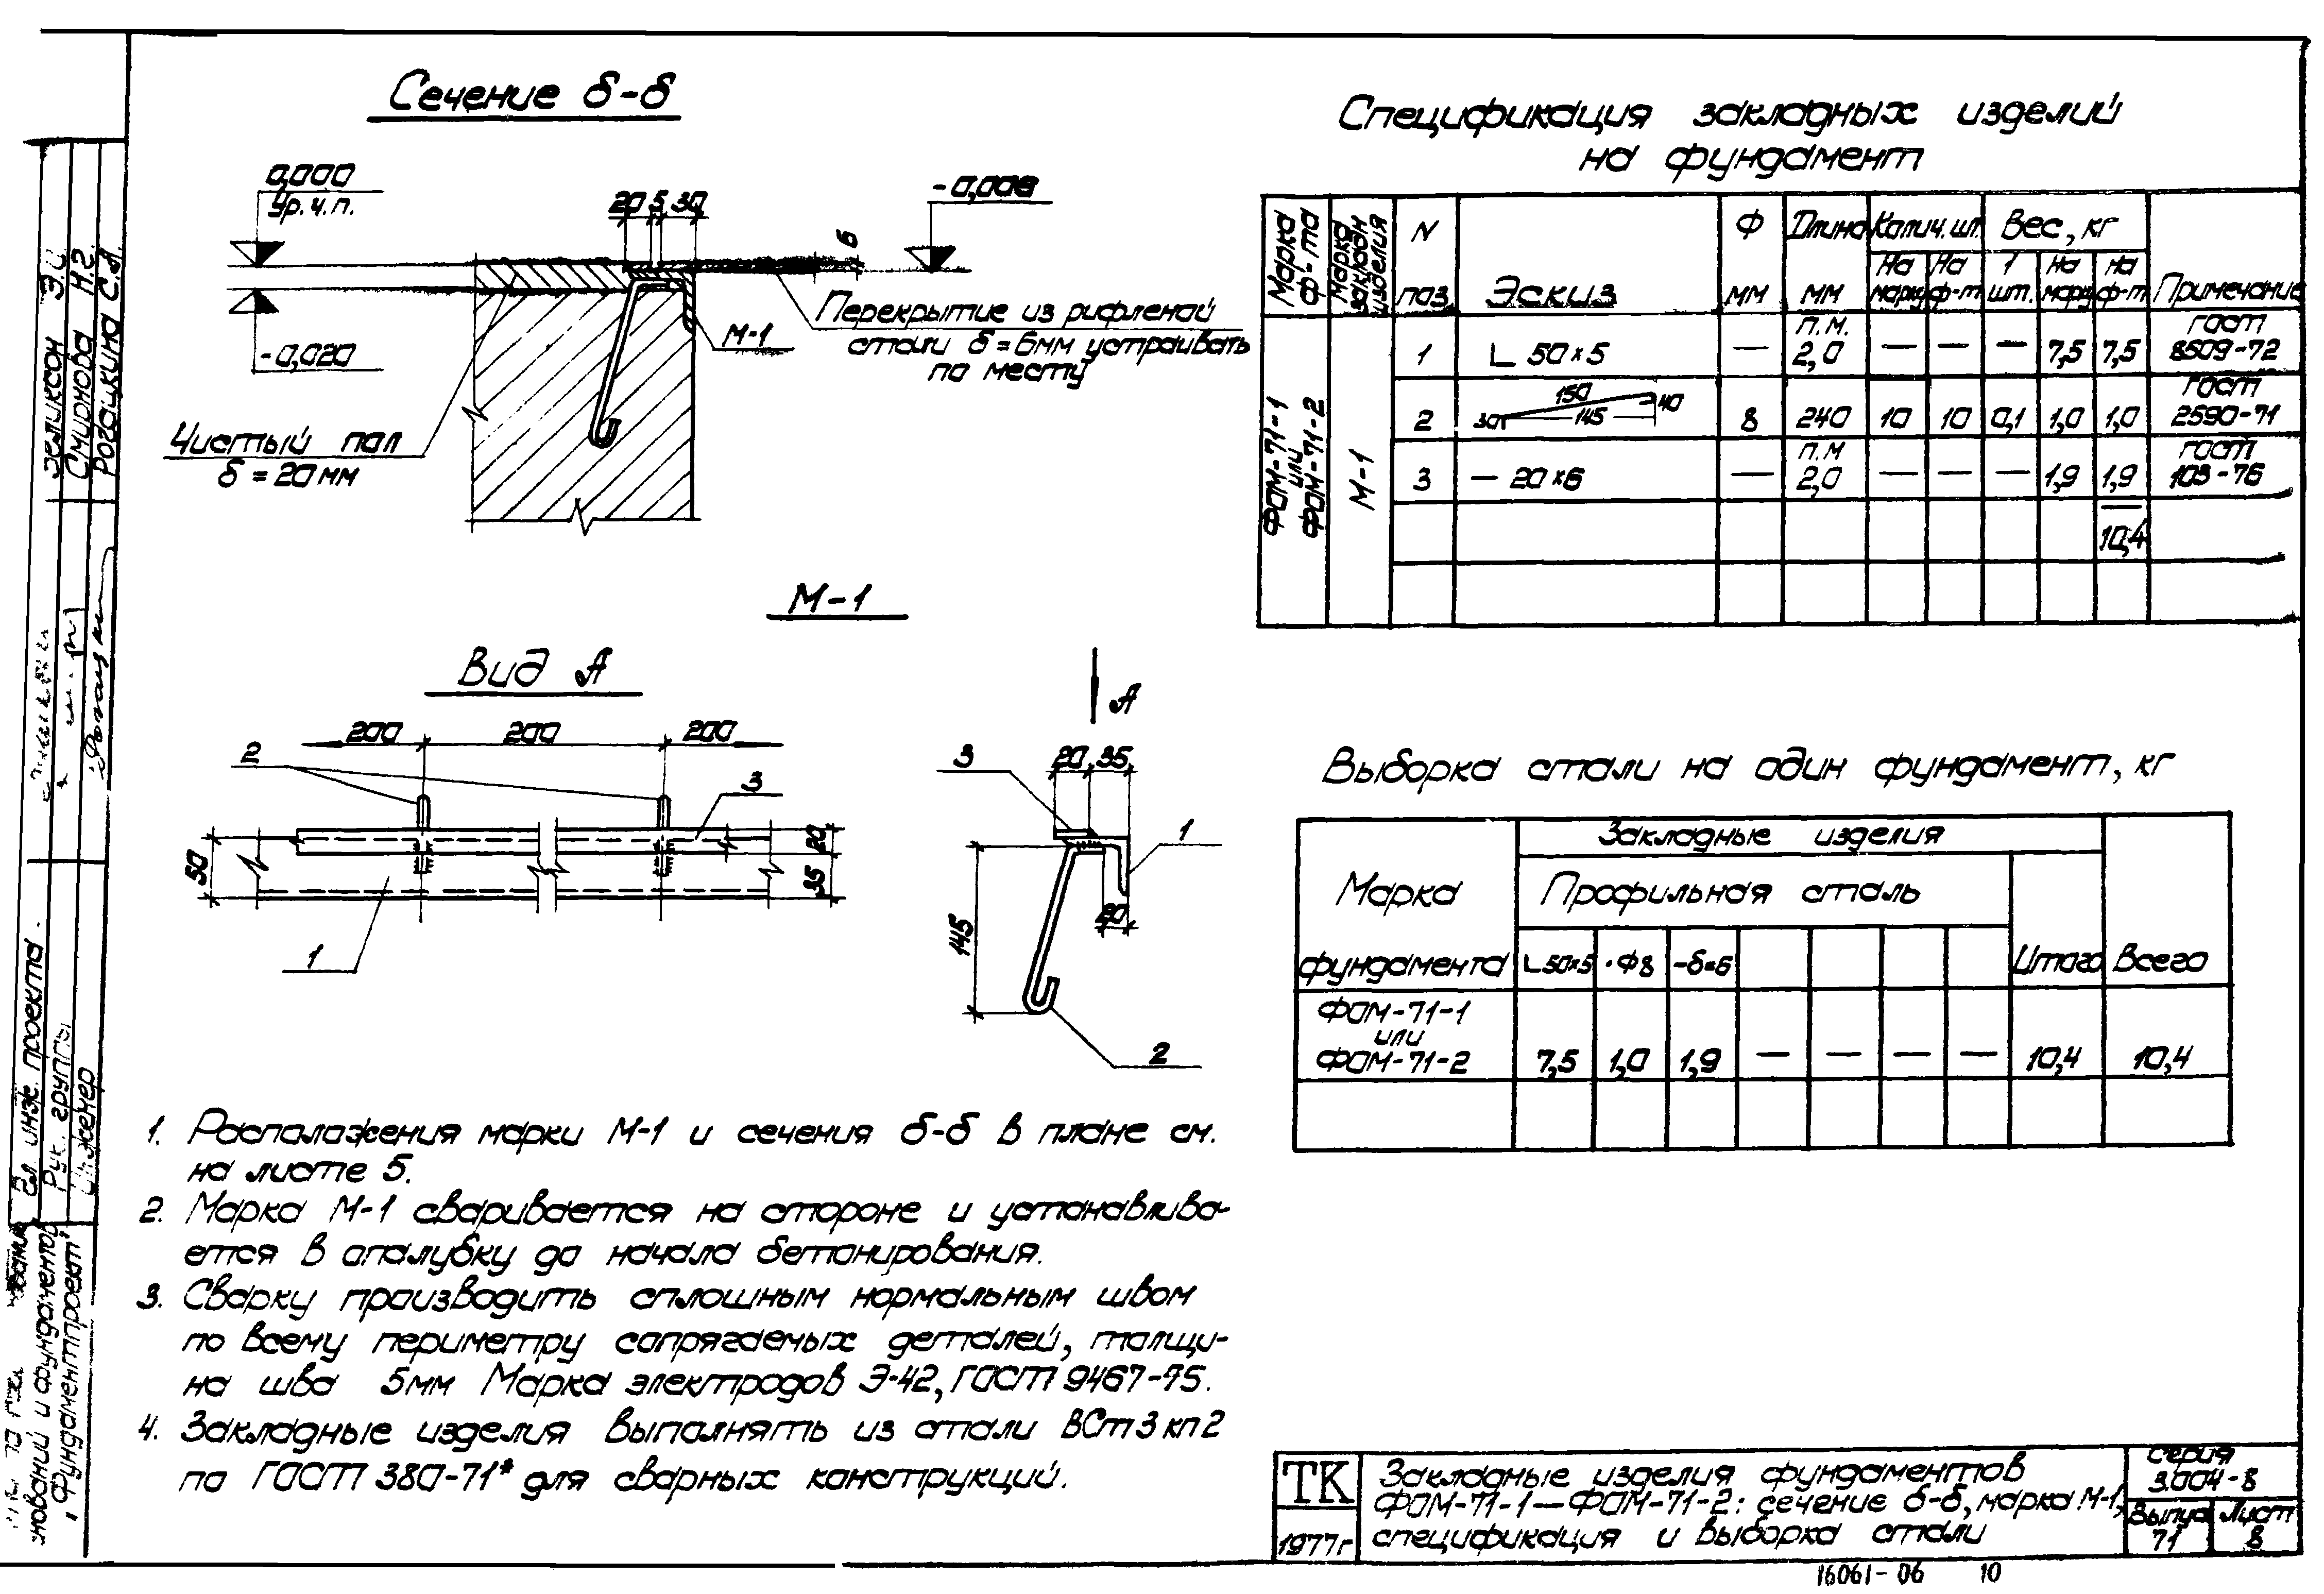 Сечение б-б
0,000
Ур. ч. п.
-0,020
20 5 30
6
-0,006
Перекрытие из рифленой
стали δ = 6мм устраивать
по месту
М-1
Чистый пол
δ = 20 мм
М-1
Вид А
200 200 200
2
3
50
20
35
1
А
3
20 35
1
145
20
2
1. Расположения марки М-1 и сечения б-б в плане см.
на листе 5.
2. Марка М-1 сваривается на стороне и устанавлива-
ется в опалубку до начала бетонирования.
3. Сварку производить сплошным нормальным швом
по всему периметру сопрягаемых деталей, толщи-
на шва 5мм Марка электродов Э-42, ГОСТ 9467-75.
4. Закладные изделия выполнять из стали ВСт3кп2
по ГОСТ 380-71* для сварных конструкций.
Спецификация закладных изделий
на фундамент
Марка ф-та
Марка закладн изделия
N поз.
Эскиз
Ф мм
Длина мм
Колич. шт.
На марку
На ф-т
Вес, кг
1 шт.
на марку
на ф-т
Примечание
ФОМ-71-1 или ФОМ-71-2
М-1
1 L 50×5 — п.м. 2,0 — — — 7,5 7,5 ГОСТ 8509-72
2 30 150 145 40 8 240 10 10 0,1 1,0 1,0 ГОСТ 2590-71
3 — 20×6 — п.м 2,0 — — — 1,9 1,9 ГОСТ 103-76
10,4
Выборка стали на один фундамент, кг
Марка фундамента
Закладные изделия
Профильная сталь
L50×5 ·Ф8 -δ=6
Итого
Всего
ФОМ-71-1
или
ФОМ-71-2 7,5 1,0 1,9 — — — — 10,4 10,4
ТК
1977г
Закладные изделия фундаментов
ФОМ-71-1—ФОМ-71-2: сечение б-б, марка М-1,
спецификация и выборка стали
Серия
3.004-8
Выпуск
71
Лист
8
16061-06 10
Зеликсон Э.И.
Смирнова Н.Г.
Рогацкина С.А.
Гл. инж. проекта
Рук. группы
Инженер
"Фундаментпроект"